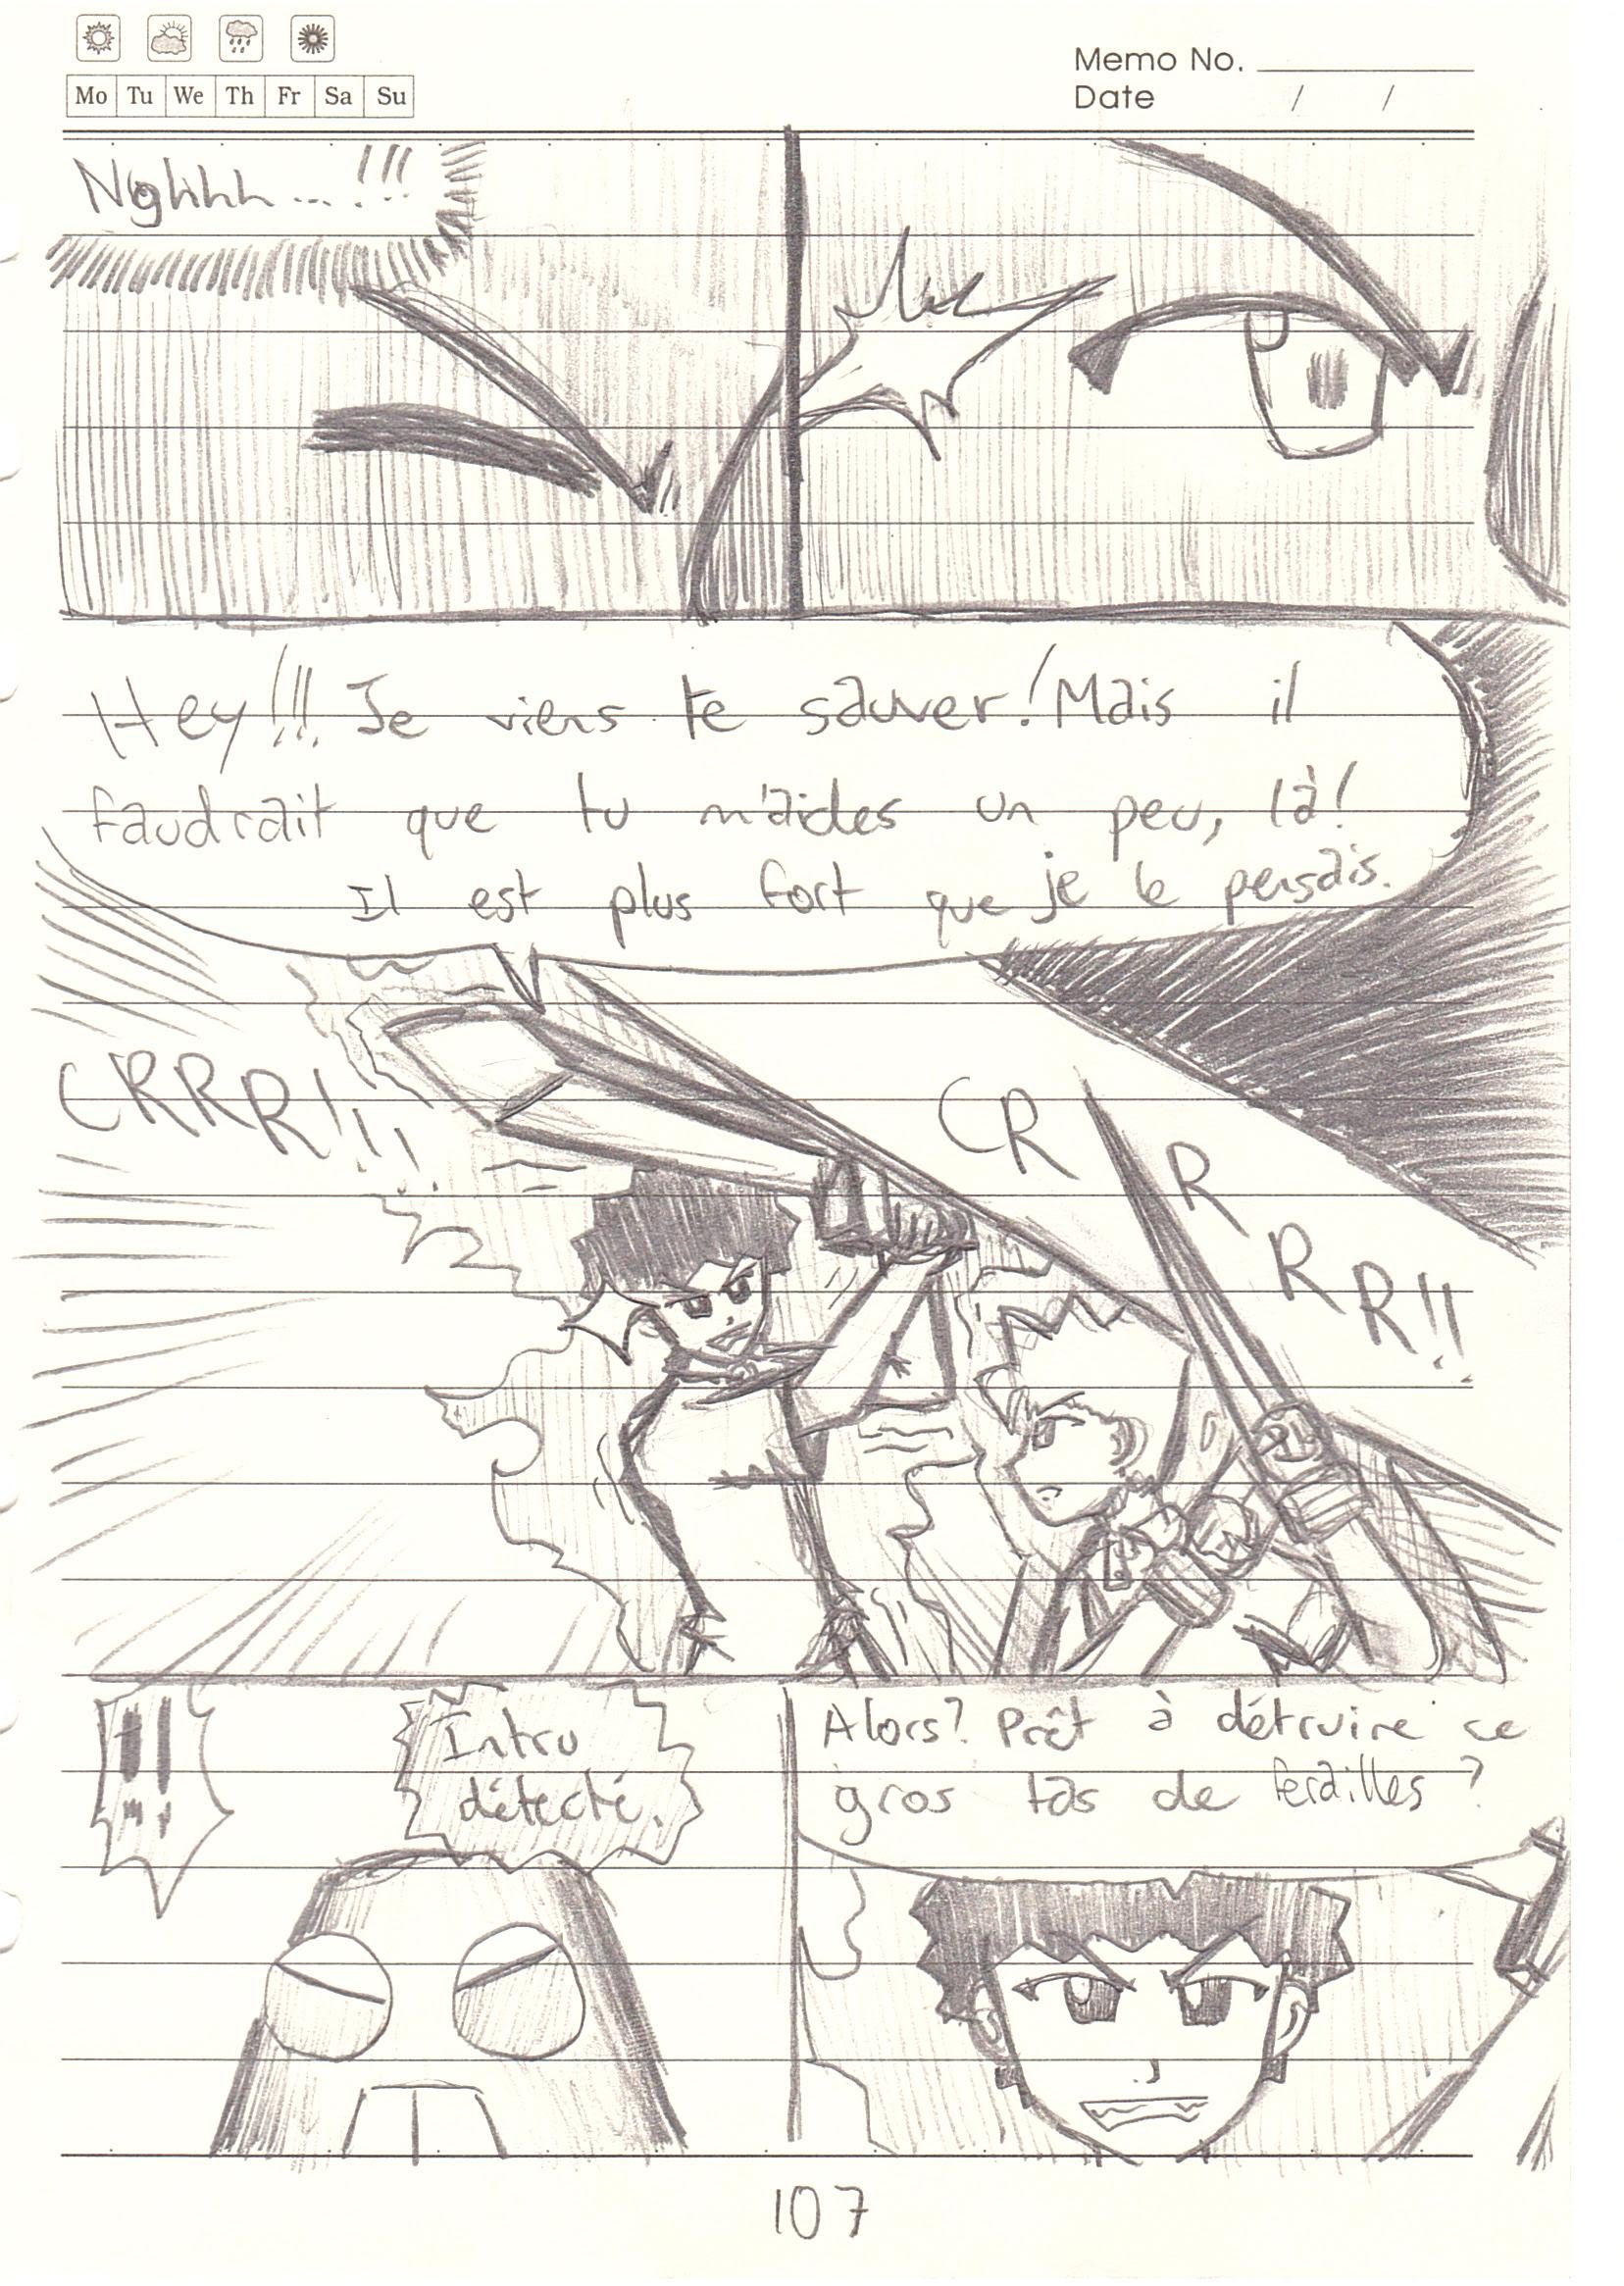 Memo No.
Mo Tu We Th Fr Sa Su
Date / /
Nghhh...!!!
Hey!!! Je viens te sauver! Mais il
faudrait que tu m'aides un peu, là!
Il est plus fort que je le pensais.
CRRR!!!
CRRRR!!
!!
Intru
détecté.
Alors? Prêt à détruire ce
gros tas de ferailles?
107